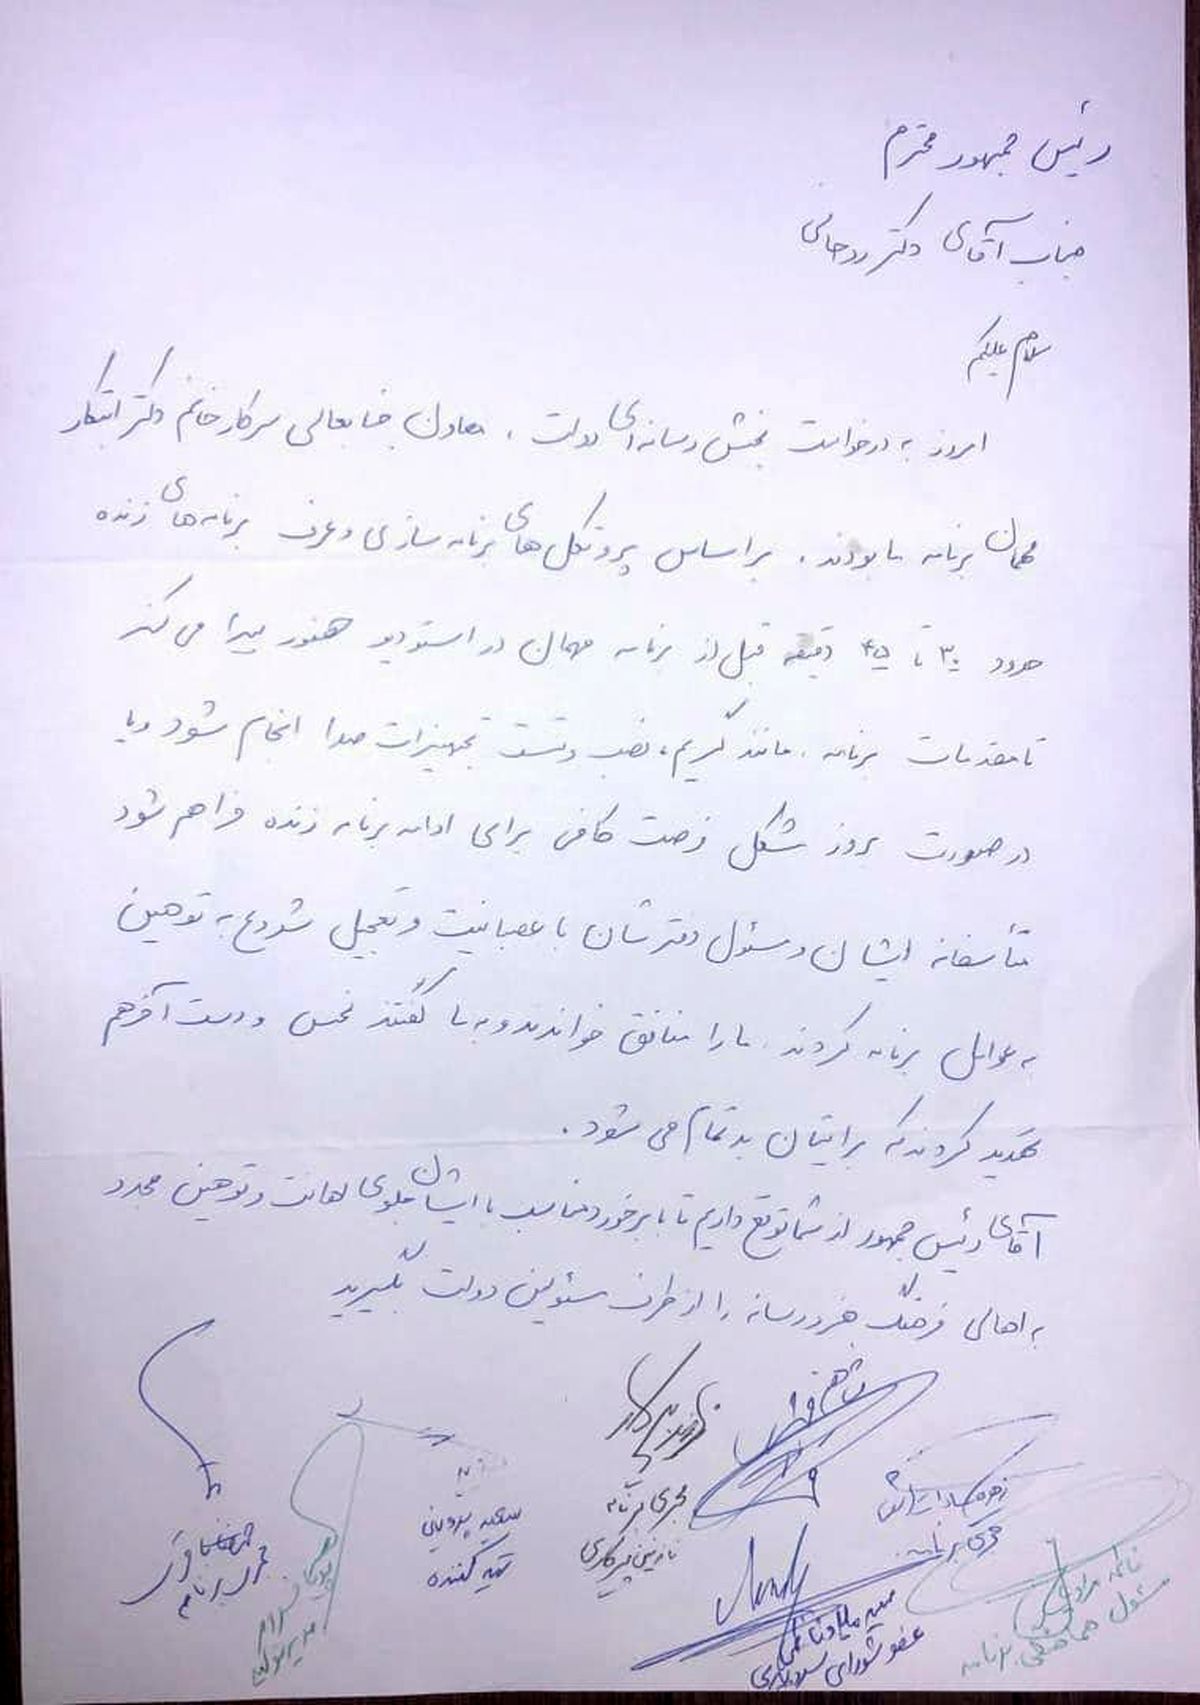 رئیس جمهور محترم
جناب آقای دکتر روحانی
سلام علیکم
امروز به درخواست بخش رسانه‌ای دولت، معاون جنابعالی سرکار خانم دکتر ابتکار
مهمان برنامه ما بودند. براساس پروتکل‌های برنامه سازی و عرف برنامه‌های زنده
حدود ۳۰ تا ۴۵ دقیقه قبل از برنامه مهمان در استودیو حضور پیدا می کند
تا مقدمات برنامه، مانند گریم، نصب و تست تجهیزات صدا انجام شود و یا
در صورت بروز مشکل فرصت کافی برای ادامه برنامه زنده فراهم شود
متأسفانه ایشان و مسئول دفترشان با عصبانیت و تعجیل شروع به توهین
به عوامل برنامه کردند. ما را منافق خواندند و به ما گفتند نحس و دست آخر هم
تهدید کردند که برایتان بد تمام می شود.
آقای رئیس جمهور از شما توقع داریم تا با برخورد مناسب با ایشان جلوی اهانت و توهین مجدد
به اهالی فرهنگ هنر و رسانه را از طرف مسئولین دولت بگیرید
مجری برنامه
نازنین پیرکاری
سعید پروینی
تهیه کننده
مجری برنامه
مجری برنامه
عضو شورای سردبیری
مسئول هماهنگی برنامه
مدیر تولید